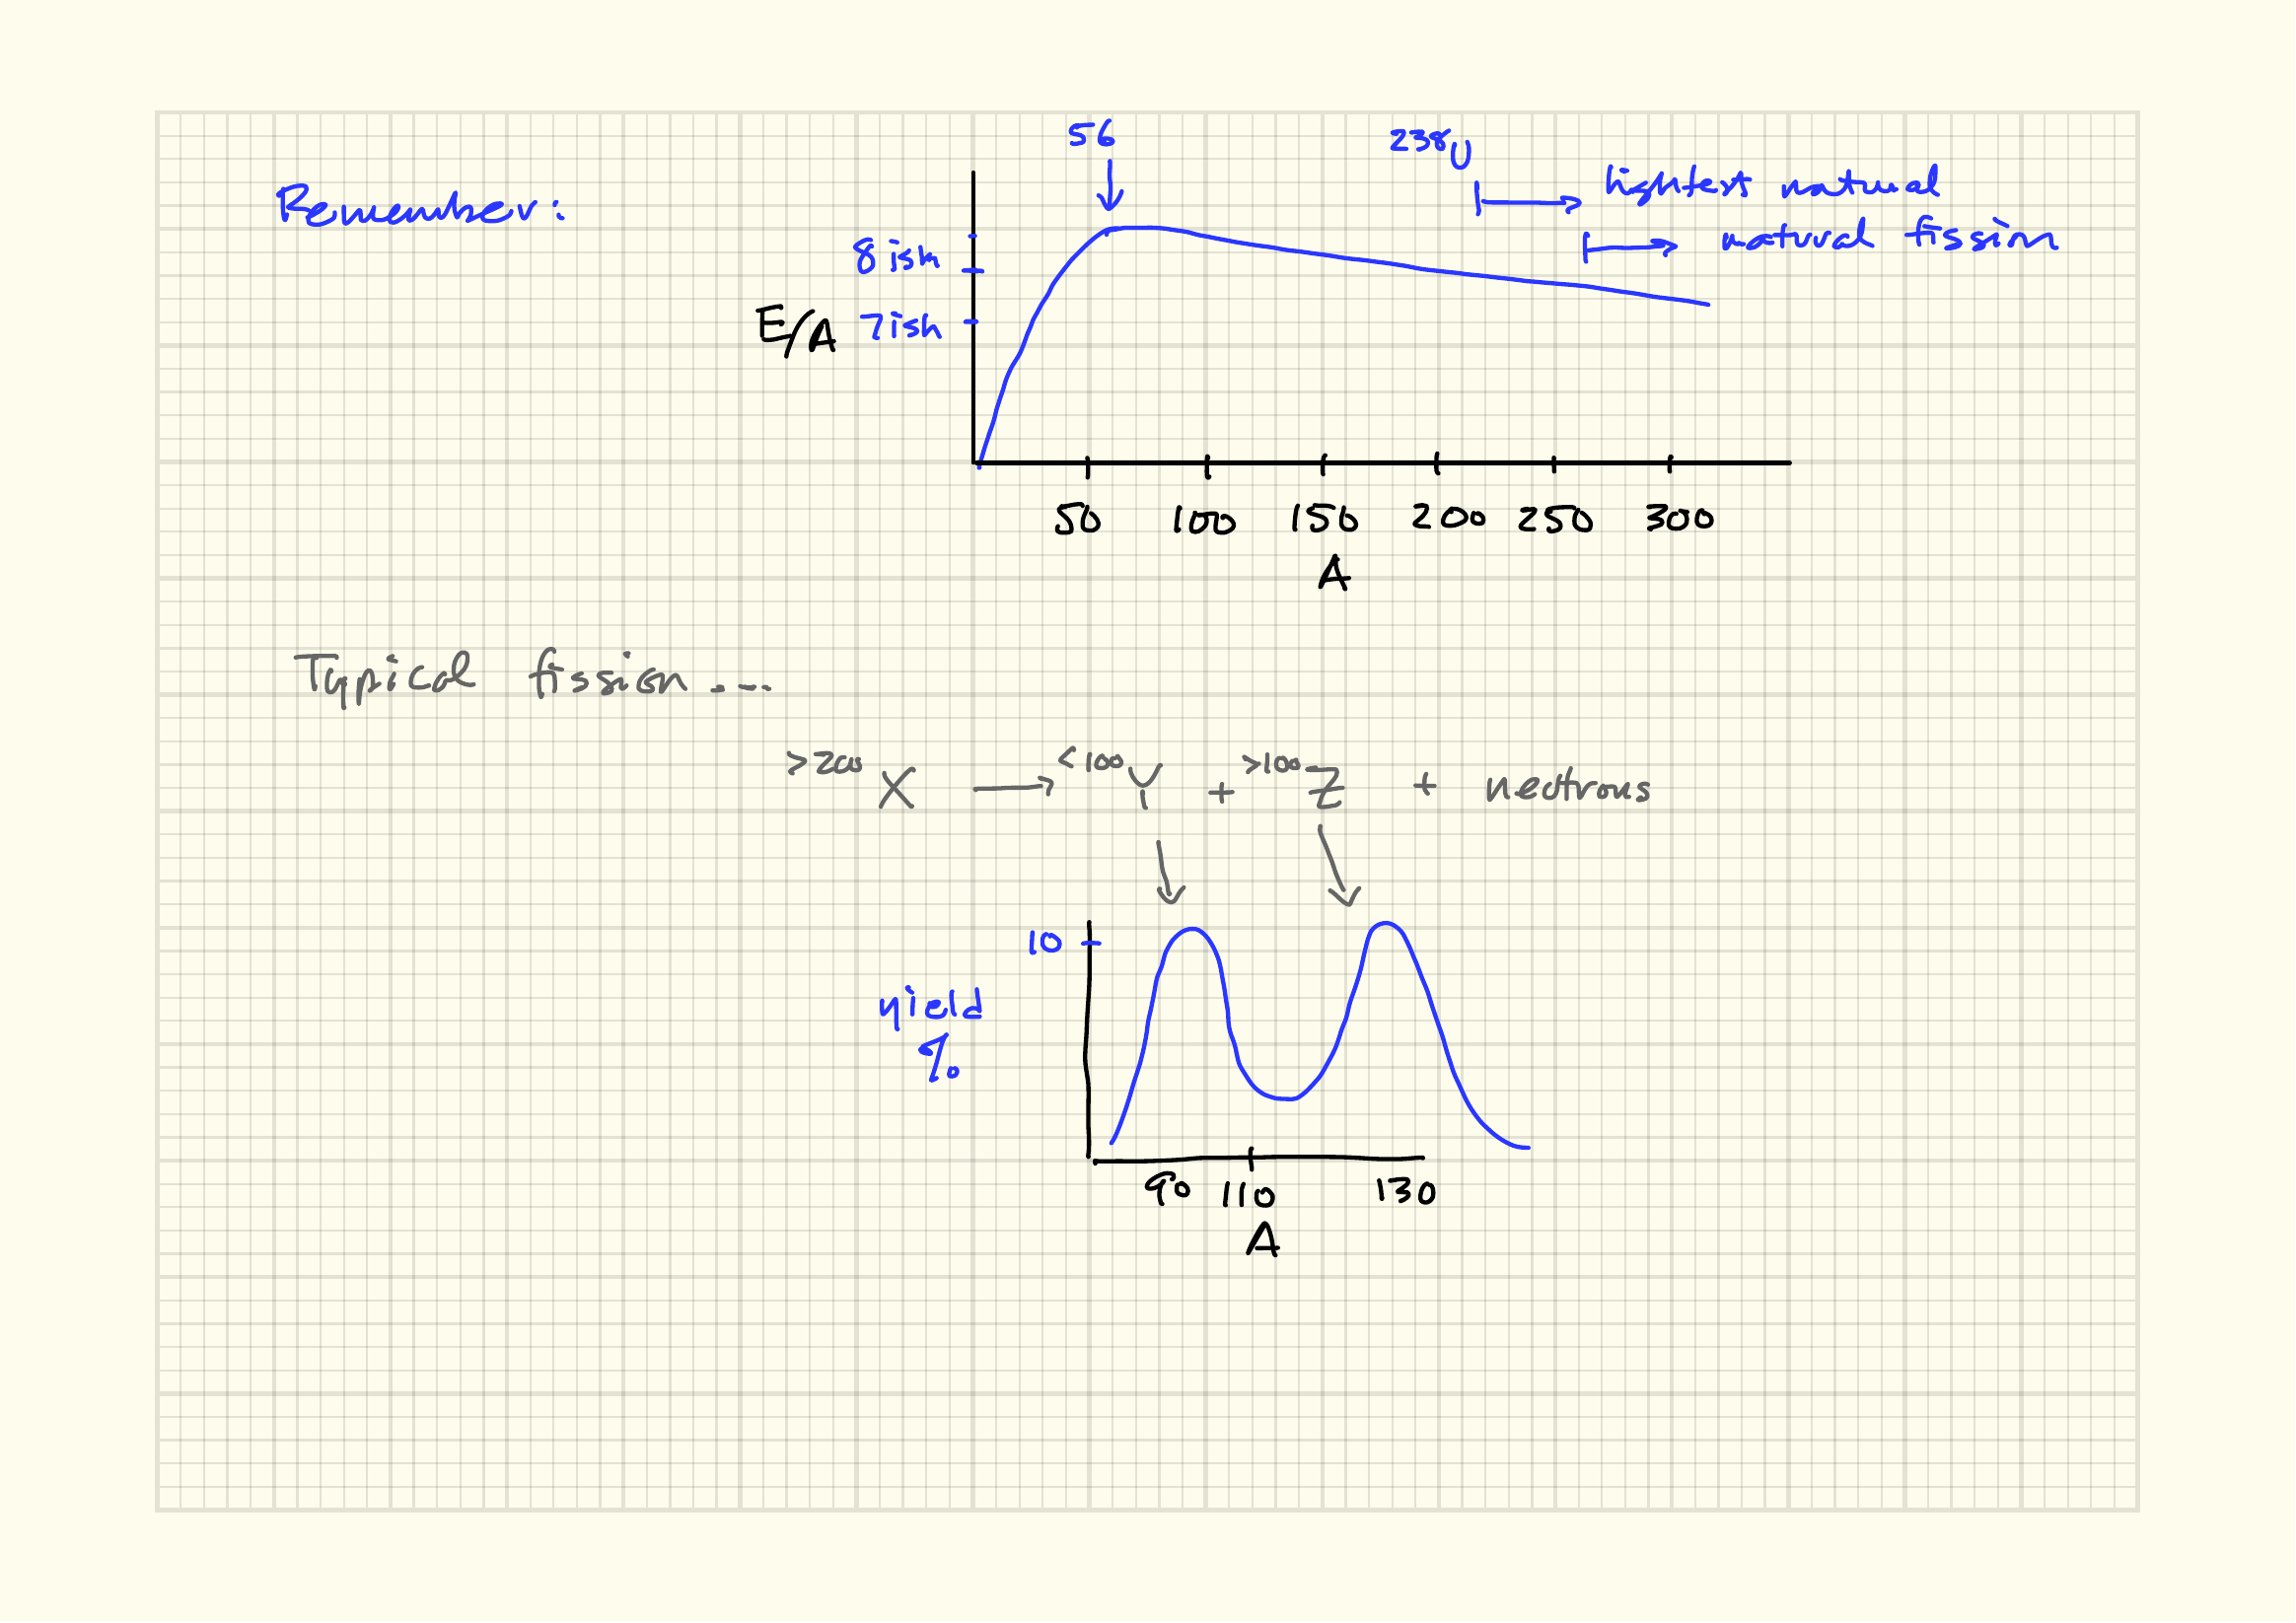 56
238U
Remember:
lightest natural
natural fission
8 ish
E/A 7ish
50 100 150 200 250 300
A
Typical fission ....
>200X → <100Y + >100Z + neutrons
10
yield
%
90 110 130
A